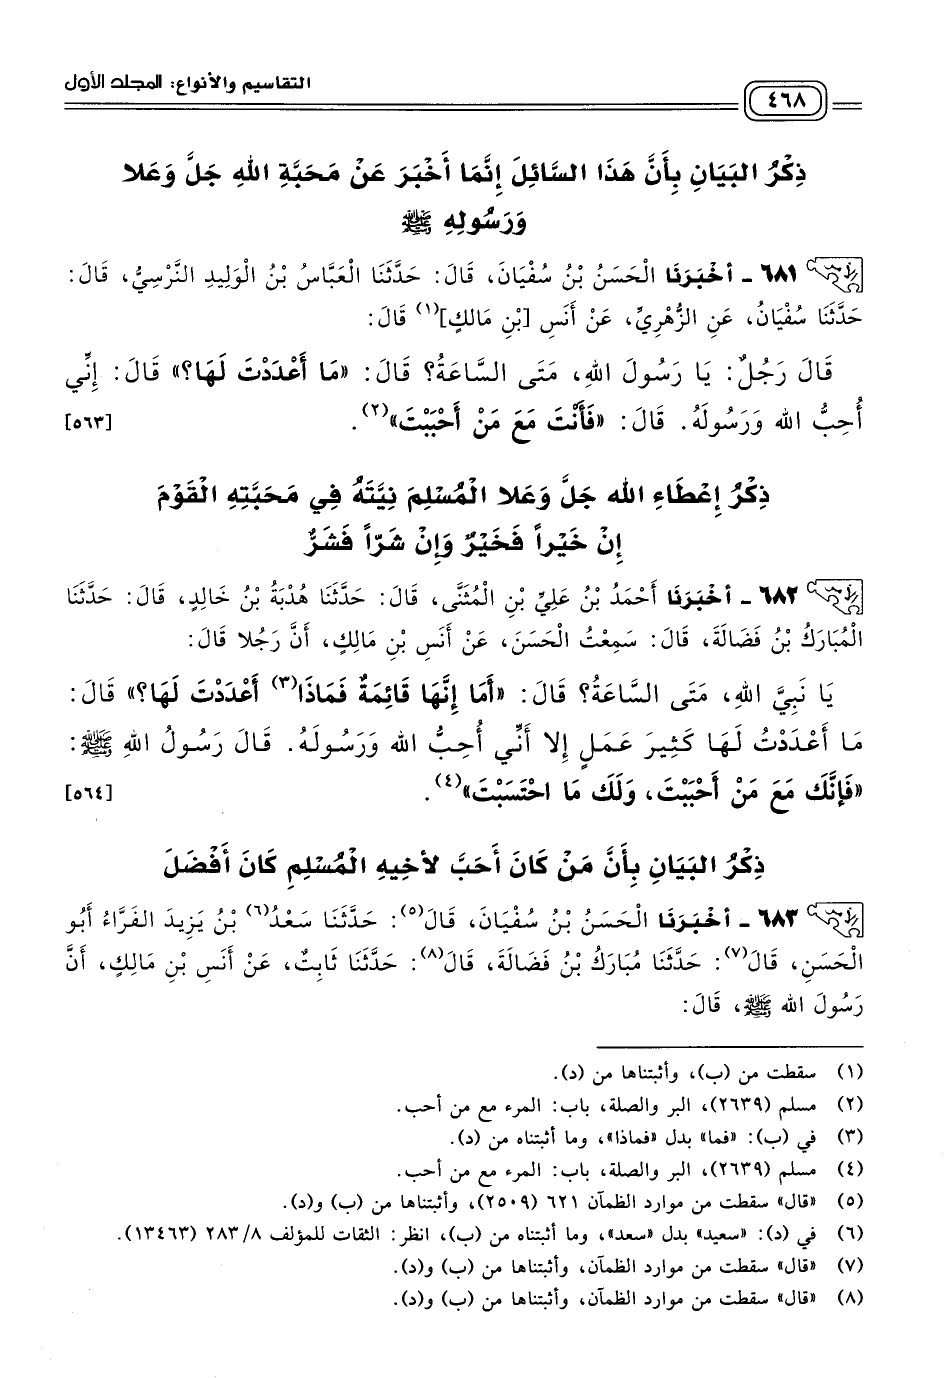 التقاسيم والأنواع: المجلد الأول
٤٦٨
ذِكْرُ البَيَانِ بِأَنَّ هَذَا السَّائِلَ إِنَّمَا أَخْبَرَ عَنْ مَحَبَّةِ اللهِ جَلَّ وَعَلا
وَرَسُولِهِ ﷺ
٦٨١ - أخْبَرَنَا الْحَسَنُ بْنُ سُفْيَانَ، قَالَ: حَدَّثَنَا العَبَّاسُ بْنُ الْوَلِيدِ النَّرْسِيُّ، قَالَ:
حَدَّثَنَا سُفْيَانُ، عَنِ الزُّهْرِيِّ، عَنْ أَنَسِ [بْنِ مَالكٍ](١) قَالَ:
قَالَ رَجُلٌ: يَا رَسُولَ اللهِ، مَتَى السَّاعَةُ؟ قَالَ: «مَا أَعْدَدْتَ لَهَا؟» قَالَ: إِنِّي
أُحِبُّ الله وَرَسُولَهُ. قَالَ: «فَأَنْتَ مَعَ مَنْ أَحْبَبْتَ»(٢). [٥٦٣]
ذِكْرُ إعْطَاءِ الله جَلَّ وَعَلا الْمُسْلِمَ نِيَّتَهُ فِي مَحَبَّتِهِ الْقَوْمَ
إنْ خَيْراً فَخَيْرٌ وَإِنْ شَرّاً فَشَرٌّ
٦٨٢ - أخْبَرَنَا أَحْمَدُ بْنُ عَلِيِّ بْنِ الْمُثَنَّى، قَالَ: حَدَّثَنَا هُدْبَةُ بْنُ خَالِدٍ، قَالَ: حَدَّثَنَا
الْمُبَارَكُ بْنُ فَضَالَةَ، قَالَ: سَمِعْتُ الْحَسَنَ، عَنْ أَنَسِ بْنِ مَالِكٍ، أَنَّ رَجُلا قَالَ:
يَا نَبِيَّ اللهِ، مَتَى السَّاعَةُ؟ قَالَ: «أَمَا إِنَّهَا قَائِمَةٌ فَمَاذَا(٣) أَعْدَدْتَ لَهَا؟» قَالَ:
مَا أَعْدَدْتُ لَهَا كَثِيرَ عَمَلٍ إِلا أَنِّي أُحِبُّ الله وَرَسُولَهُ. قَالَ رَسُولُ اللهِ ﷺ:
«فَإِنَّكَ مَعَ مَنْ أَحْبَبْتَ، وَلَكَ مَا احْتَسَبْتَ»(٤). [٥٦٤]
ذِكْرُ البَيَانِ بِأَنَّ مَنْ كَانَ أَحَبَّ لأخِيهِ الْمُسْلِمِ كَانَ أَفْضَلَ
٦٨٣ - أخْبَرَنَا الْحَسَنُ بْنُ سُفْيَانَ، قَالَ(٥): حَدَّثَنَا سَعْدُ(٦) بْنُ يَزِيدَ الفَرَّاءُ أَبُو
الْحَسَنِ، قَالَ(٧): حَدَّثَنَا مُبَارَكُ بْنُ فَضَالَةَ، قَالَ(٨): حَدَّثَنَا ثَابِتٌ، عَنْ أَنَسِ بْنِ مَالِكٍ، أَنَّ
رَسُولَ الله ﷺ، قَالَ:
(١) سقطت من (ب)، وأثبتناها من (د).
(٢) مسلم (٢٦٣٩)، البر والصلة، باب: المرء مع من أحب.
(٣) في (ب): «فما» بدل «فماذا»، وما أثبتناه من (د).
(٤) مسلم (٢٦٣٩)، البر والصلة، باب: المرء مع من أحب.
(٥) «قال» سقطت من موارد الظمآن ٦٢١ (٢٥٠٩)، وأثبتناها من (ب) و(د).
(٦) في (د): «سعيد» بدل «سعد»، وما أثبتناه من (ب)، انظر: الثقات للمؤلف ٢٨٣/٨ (١٣٤٦٣).
(٧) «قال» سقطت من موارد الظمآن، وأثبتناها من (ب) و(د).
(٨) «قال» سقطت من موارد الظمآن، وأثبتناها من (ب) و(د).